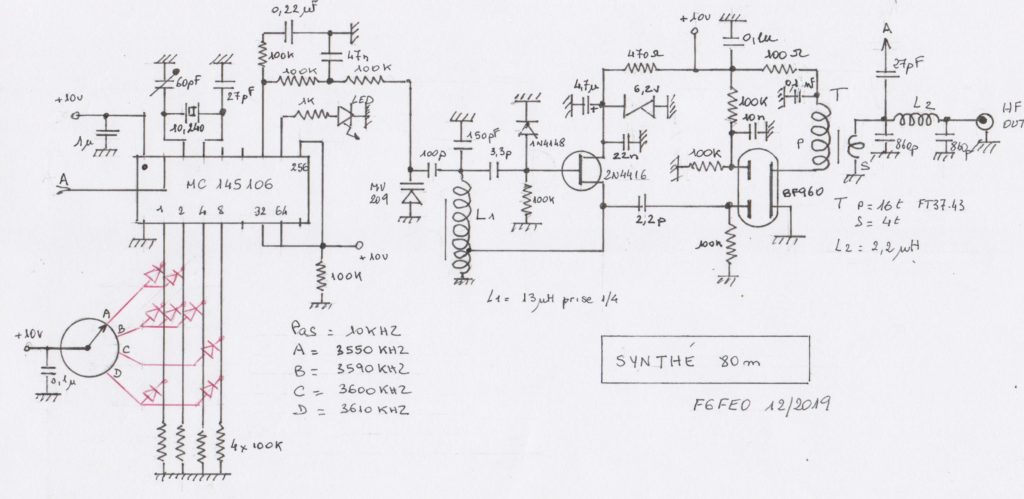 +10v
0,22µF
0,1µ
A
60pF
100K
47n
100K
100K
470Ω
100Ω
27pF
27pF
1K
LED
4,7µ
+
6,2v
0,1µF
T
L2
HF
OUT
+10v
10,240
150pF
1N4148
100K
10n
P
1µ
860p
860p
S
256
100p
3,3p
22n
100K
2N4416
BF960
A
MC 145106
MV
209
T P = 16t FT37.43
S = 4t
1 2 4 8 32 64
L1
100K
2,2p
100K
L2 = 2,2µH
+10v
100K
L1 = 13µH prise 1/4
A
B
C
D
+10V
0,1µ
Pas = 10KHZ
A = 3550KHZ
B = 3590KHZ
C = 3600KHZ
D = 3610KHZ
SYNTHÉ 80m
F6FEO 12/2019
4x100K